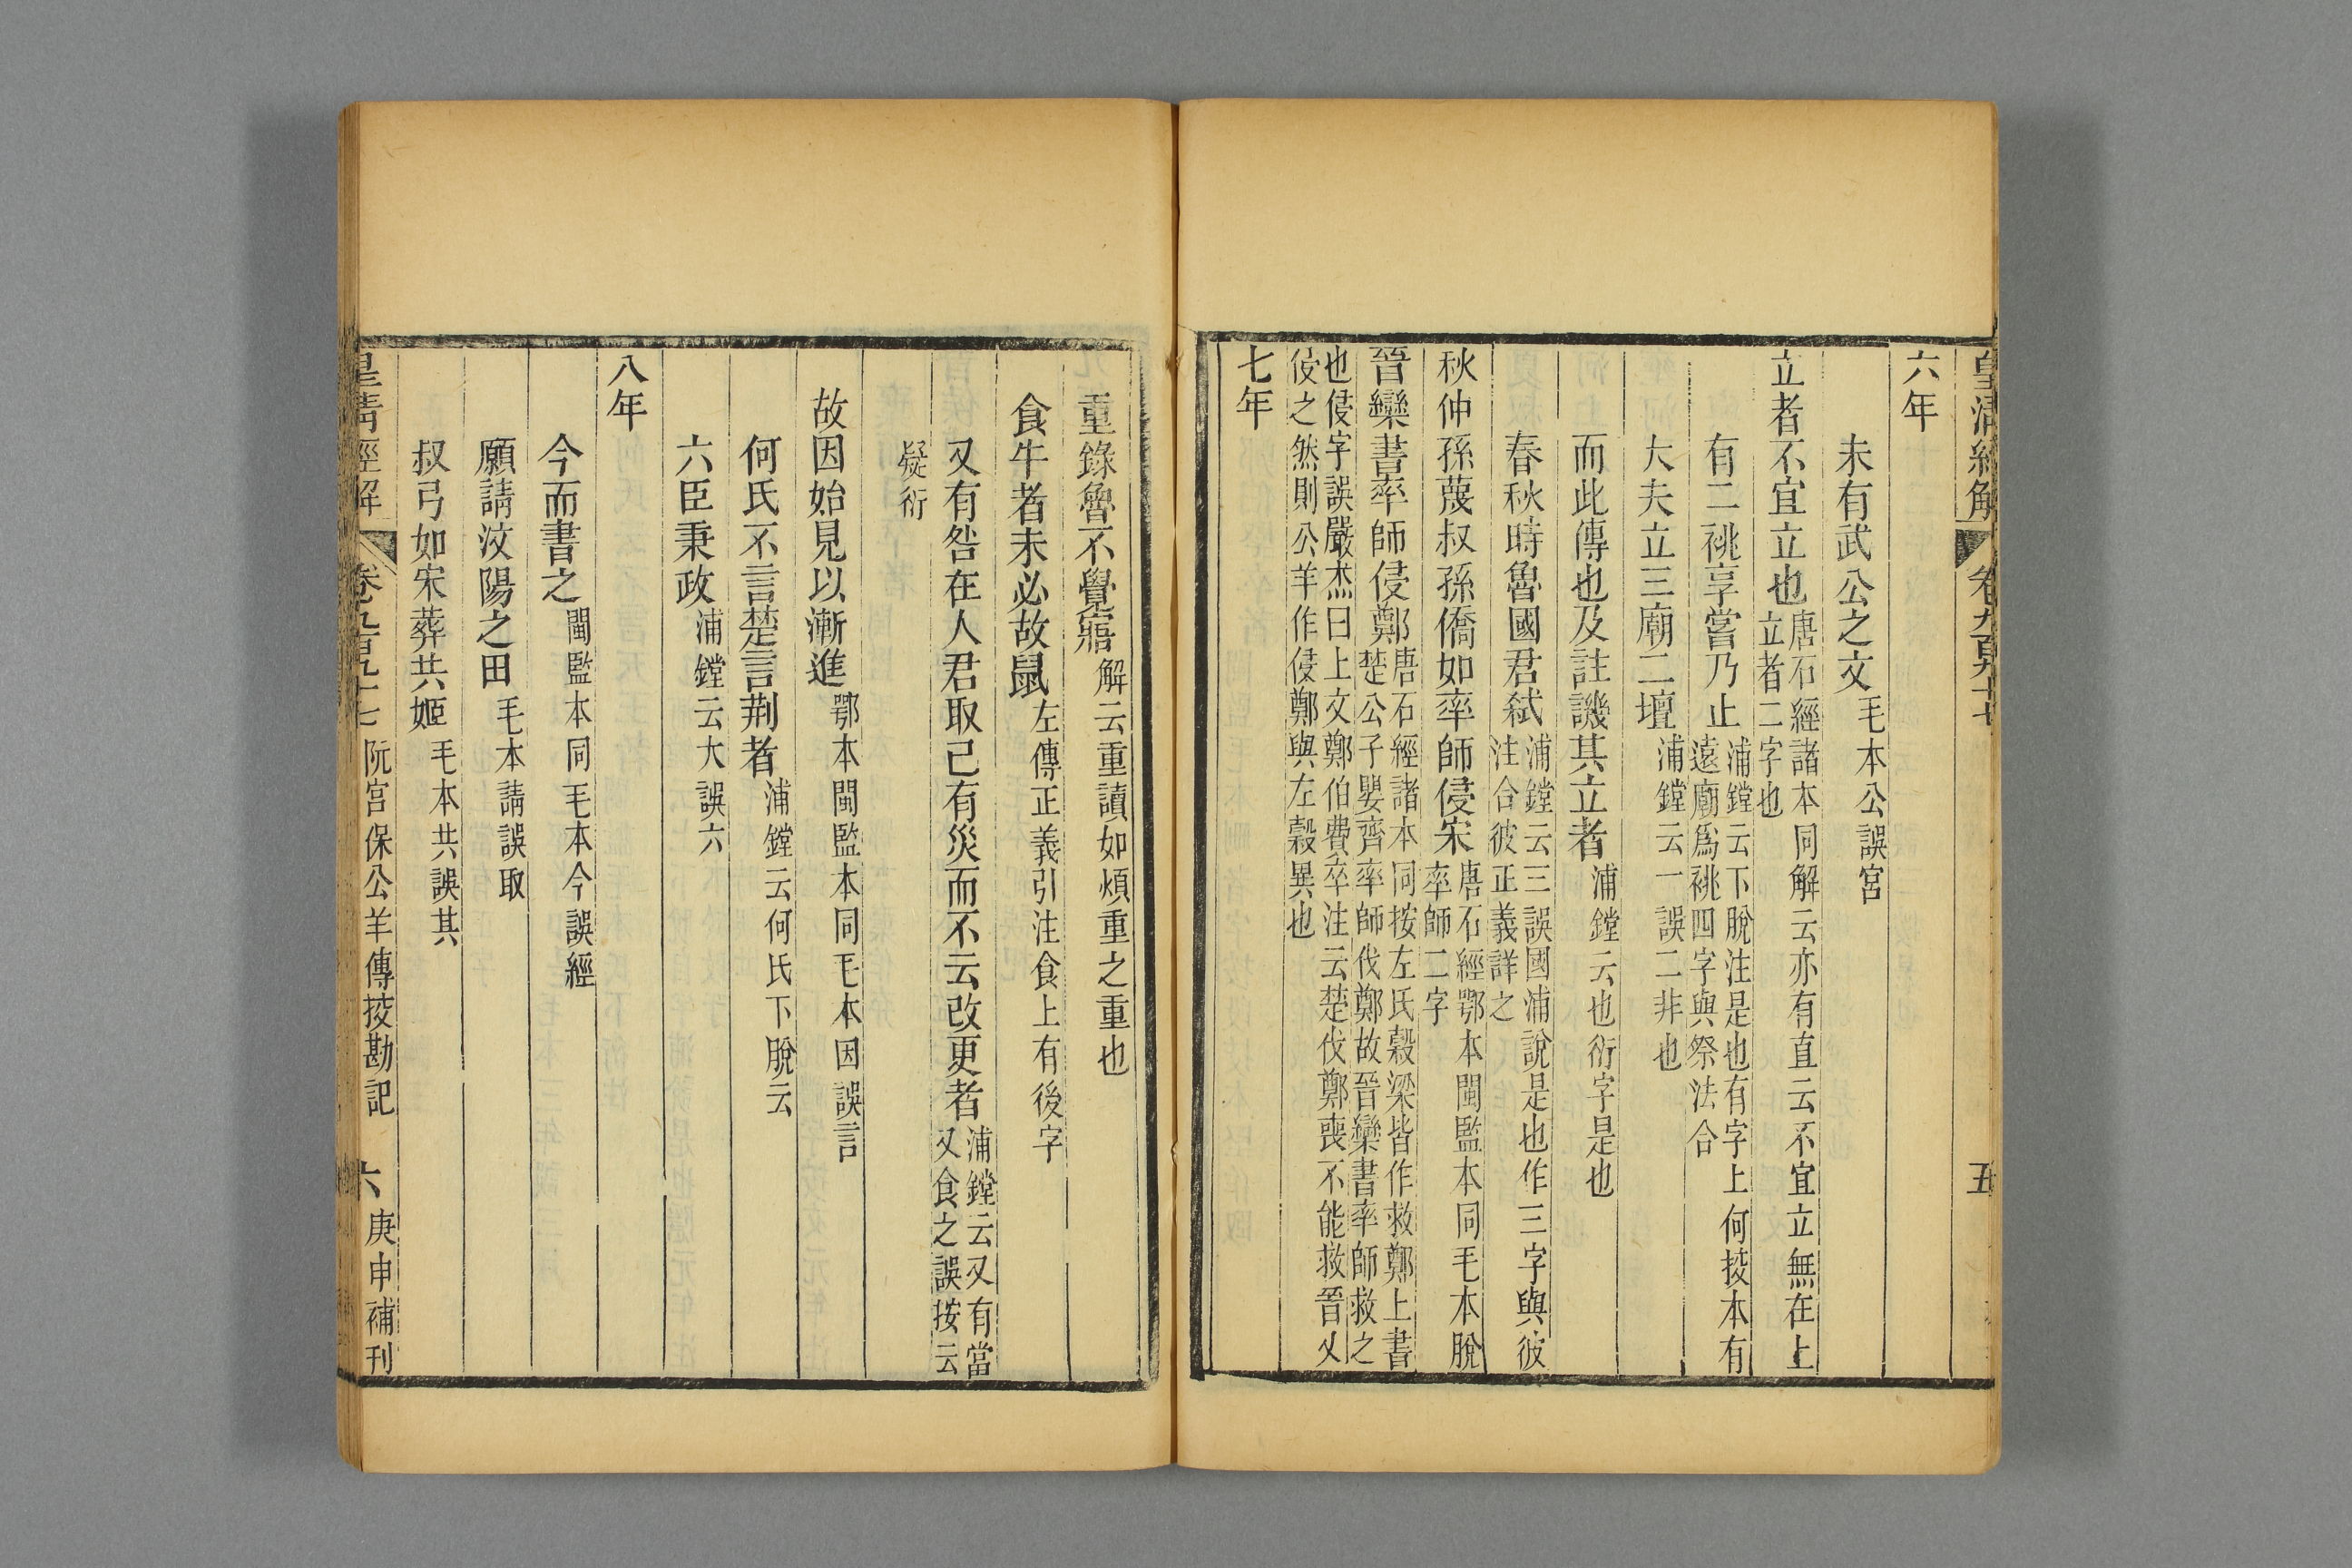 皇清經解 卷九百九十七 五
六年
未有武公之文毛本公誤宮
立者不宜立也唐石經諸本同解云亦有直云不宜立無在上
立者二字也
有二祧享嘗乃止浦鏜云下脫注是也有字上何挍本有
遠廟爲祧四字與祭法合
大夫立三廟二壇浦鏜云一誤二非也
而此傳也及註譏其立者浦鏜云也衍字是也
春秋時魯國君弑浦鏜云三誤國浦說是也作三字與彼
注合彼正義詳之
秋仲孫蔑叔孫僑如率師侵宋唐石經鄂本閩監本同毛本脫
率師二字
晉欒書率師侵鄭唐石經諸本同按左氏榖梁皆作救鄭上書
楚公子嬰齊率師伐鄭故晉欒書率師救之
也侵字誤嚴杰曰上文鄭伯費卒注云楚伐鄭喪不能救晉又
侵之然則公羊作侵鄭與左榖異也
七年
重錄魯不覺寤解云重讀如煩重之重也
食牛者未必故鼠左傳正義引注食上有後字
又有咎在人君取己有災而不云改更者浦鏜云又有當
又食之誤按云
疑衍
故因始見以漸進鄂本閩監本同毛本因誤言
何氏不言楚言荆者浦鏜云何氏下脫云
六臣秉政浦鏜云大誤六
八年
今而書之閩監本同毛本今誤經
願請汶陽之田毛本請誤取
叔弓如宋葬共姬毛本共誤其
皇清經解 卷九百九十七 阮宮保公羊傳挍勘記 六 庚申補刊